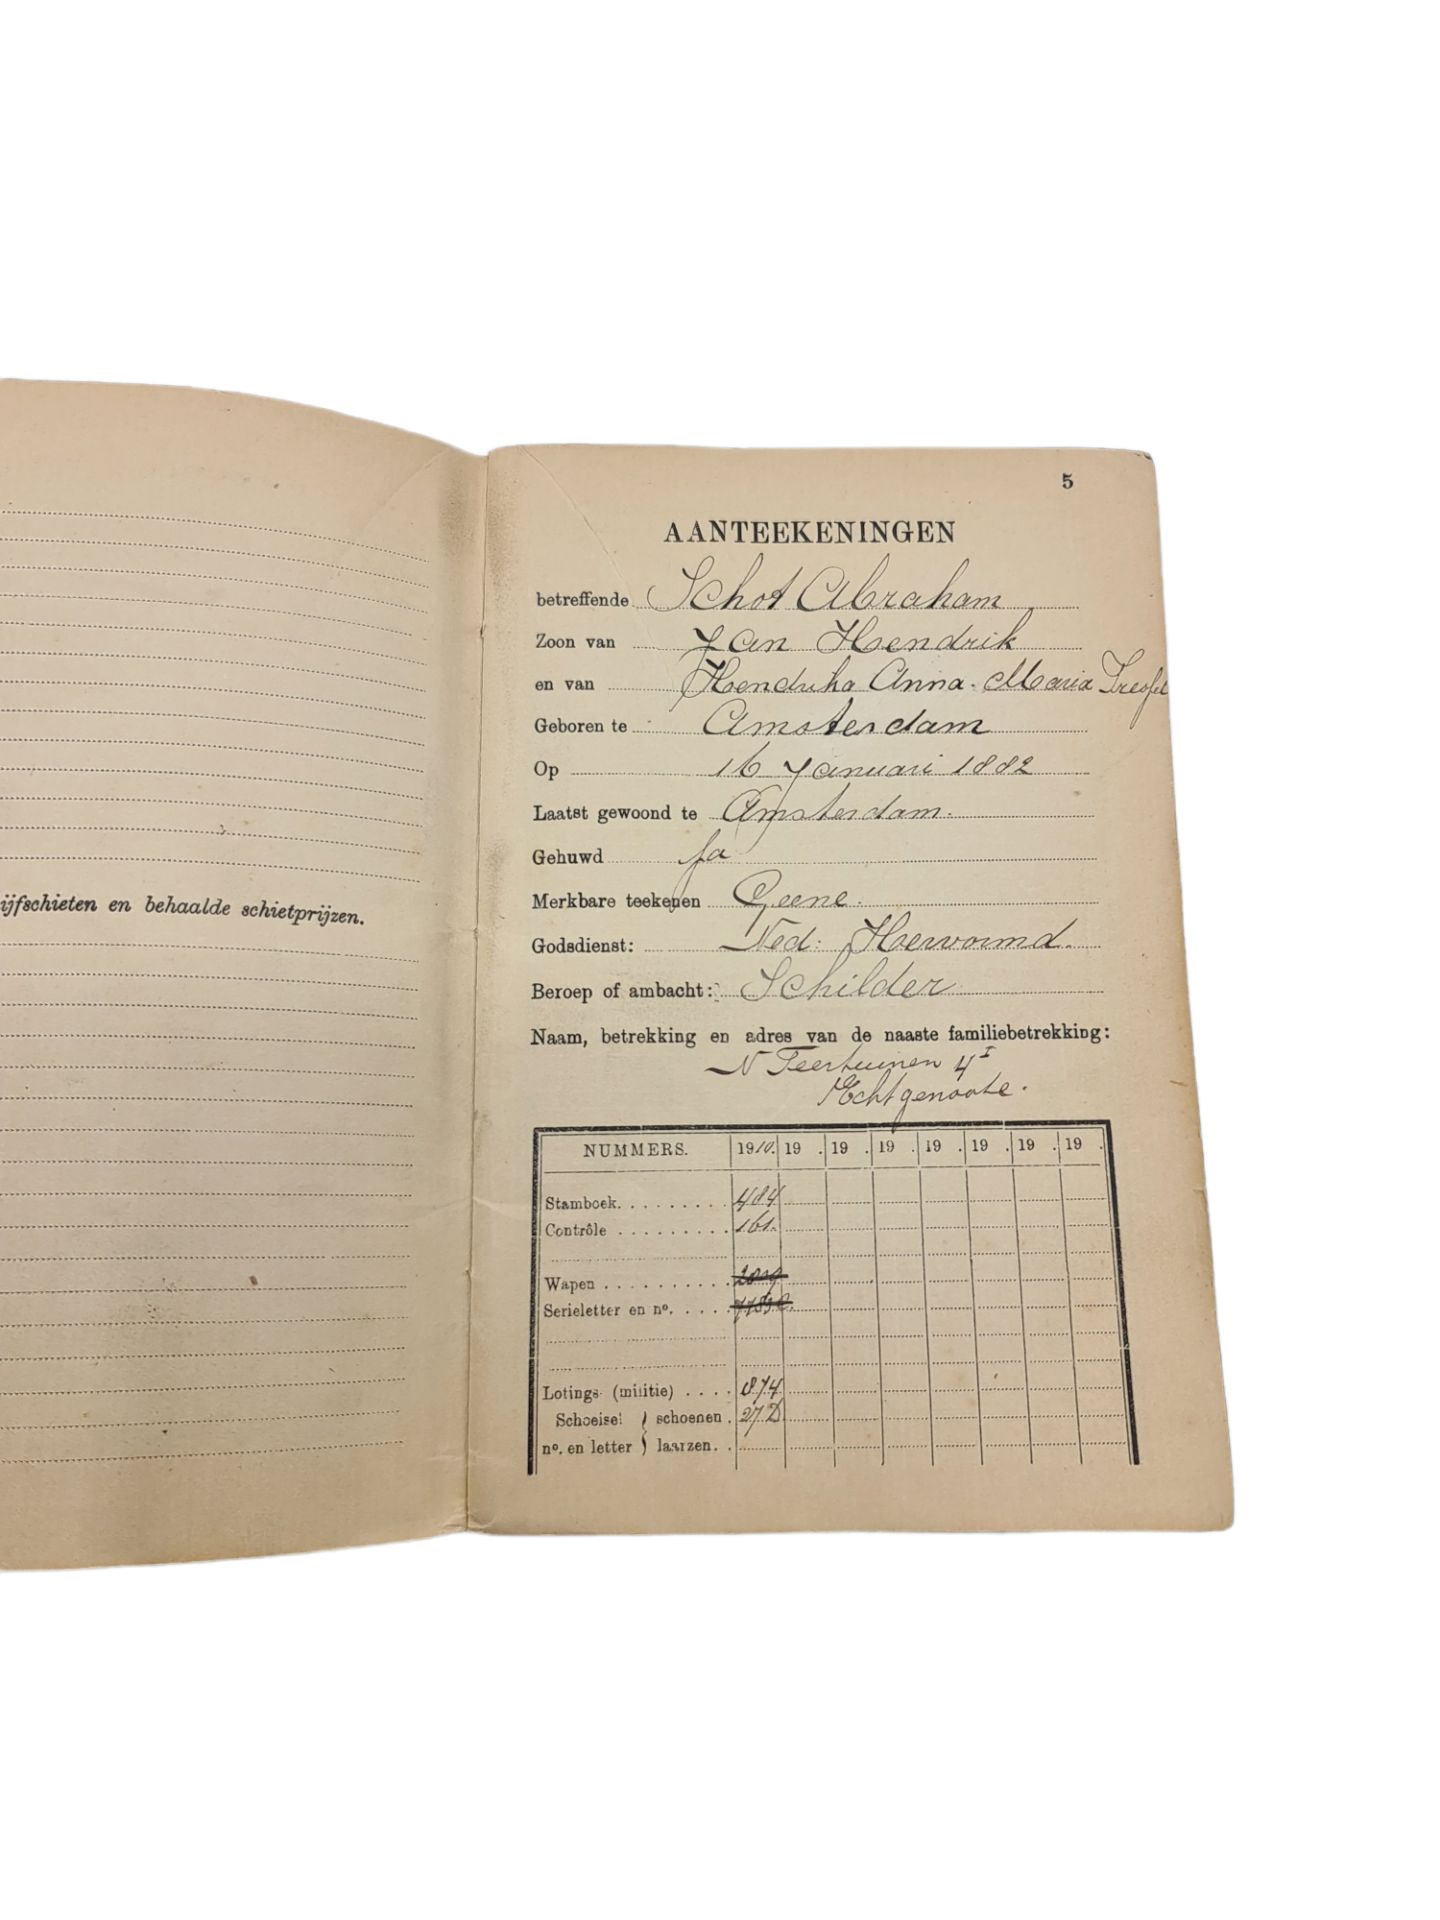 ijfschieten en behaalde schietprijzen.
5
AANTEEKENINGEN
betreffende Schot Abraham
Zoon van Jan Hendrik
en van Hendrika Anna Maria
Geboren te Amsterdam
Op 16 Januari 1882
Laatst gewoond te Amsterdam.
Gehuwd Ja
Merkbare teekenen Geene.
Godsdienst: Ned: Hervormd.
Beroep of ambacht: Schilder
Naam, betrekking en adres van de naaste familiebetrekking:
N Teertuinen 4 I
Echtgenoote.
NUMMERS. 1910. 19 . 19 . 19 . 19 . 19 . 19 . 19 .
Stamboek. . . . . . . . . 484
Contrôle . . . . . . . . . 161.
Wapen . . . . . . . . . .
Serieletter en no. . . . .
Lotings (militie) . . . . 874
Schoeisel } schoenen . 27 D
no. en letter } laarzen. .